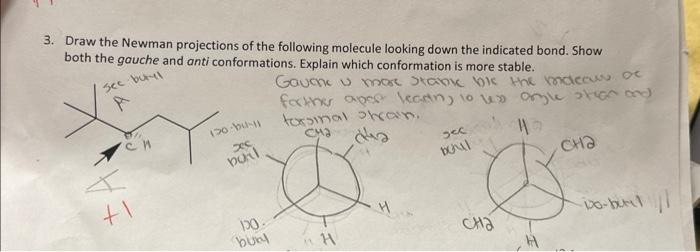 3. Draw the Newman projections of the following molecule looking down the indicated bond. Show
both the gauche and anti conformations. Explain which conformation is more stable.
sec butyl
Gauche is more stable b/c the molecules
farther apart leading to less angle strain and
torsional strain.
iso-butyl
CH3
CH3
sec
butyl
H
CH3
sec
butyl
C H
H
iso-butyl
+1
iso-
butyl
H
CH3
H